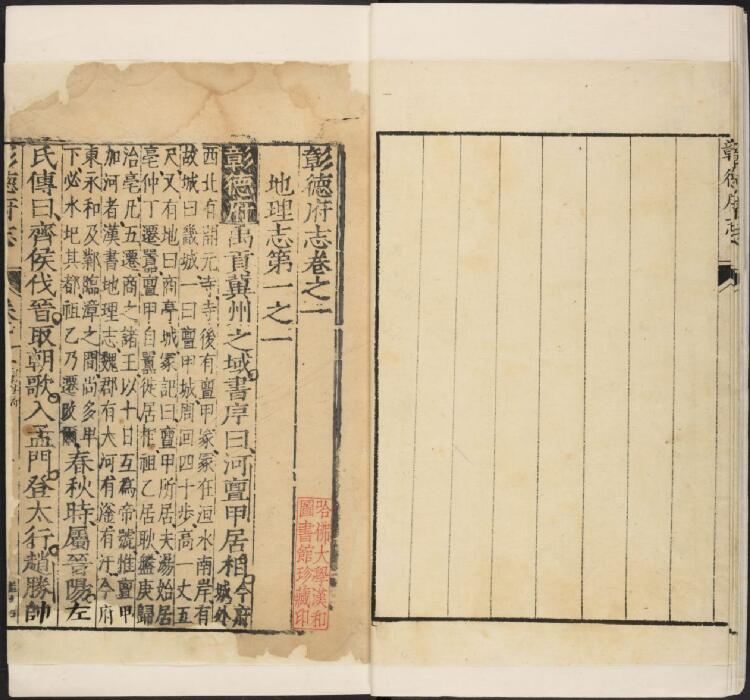 彰德府志
彰德府志卷之一
地理志第一之一
彰德府禹貢冀州之域書序曰河亶甲居相今府
城外
西北有開元寺寺後有亶甲冢冢在洹水南岸有
故城曰畿城一曰亶甲城周回四十步高一丈五
尺又有地曰商亭城冢記曰亶甲所居夫湯始居
亳仲丁遷囂亶甲自囂徙居相祖乙居耿盤庚歸
治亳凡五遷商之諸王以十日互為帝號惟亶甲
加河者漢書地理志魏郡有大河有滏有汙今府
東永和及鄴臨漳之間尚多卑
下必水圯其都祖乙乃遷
春秋時屬晉陽左
氏傳曰齊侯伐晉取朝歌入孟門登太行趙勝帥
彰德府志
哈佛大學漢和
圖書館珍藏印